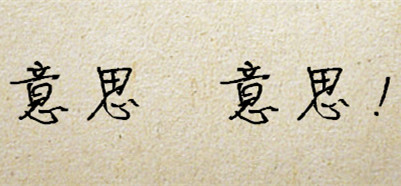 意思 意思!